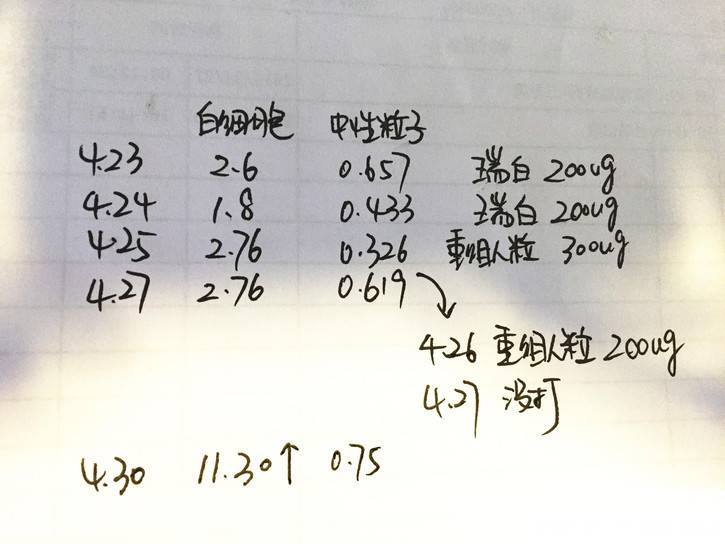 白细胞 中性粒子
4.23 2.6 0.657 瑞白 200ug
4.24 1.8 0.433 瑞白 200ug
4.25 2.76 0.326 重组人粒 300ug
4.27 2.76 0.619
4.26 重组人粒 200ug
4.27 没打
4.30 11.30↑ 0.75